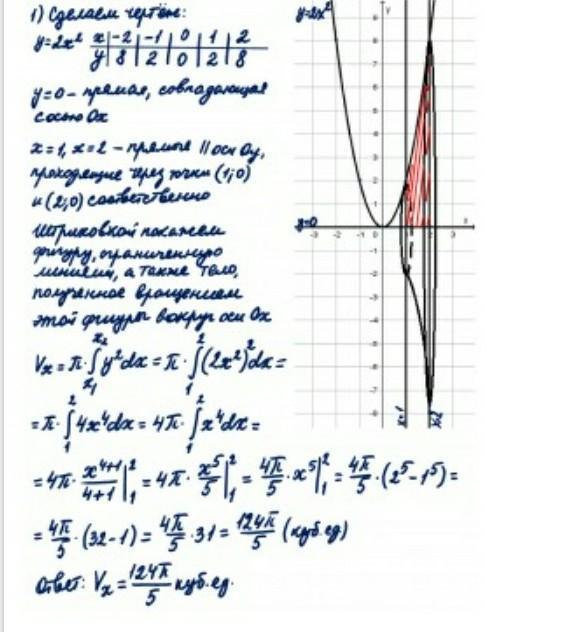 1) Сделаем чертёж:
y=2x² x | -2 | -1 | 0 | 1 | 2
y | 8 | 2 | 0 | 2 | 8
y=0 – прямая, совпадающая
с осью Ox
x=1, x=2 – прямые || оси Oy,
проходящие через точки (1;0)
и (2;0) соответственно
Штриховкой покажем
фигуру, ограниченную
линиями, а также тело,
полученное вращением
этой фигуры вокруг оси Ox
Vx = π · ∫ₓ₁ˣ² y²dx = π · ∫₁² (2x²)²dx =
= π · ∫₁² 4x⁴dx = 4π · ∫₁² x⁴dx =
= 4π · x⁴⁺¹/4+1 |₁² = 4π · x⁵/5 |₁² = 4π/5 · x⁵|₁² = 4π/5 · (2⁵ – 1⁵) =
= 4π/5 · (32 – 1) = 4π/5 · 31 = 124π/5 (куб.ед)
Ответ: Vx = 124π/5 куб.ед.
y=2x²
y
9
8
7
6
5
4
3
2
1
y=0
x
-3 -2 -1 0 1 2 3
-1
-2
-3
-4
-5
-6
-7
-8
x=1
x=2